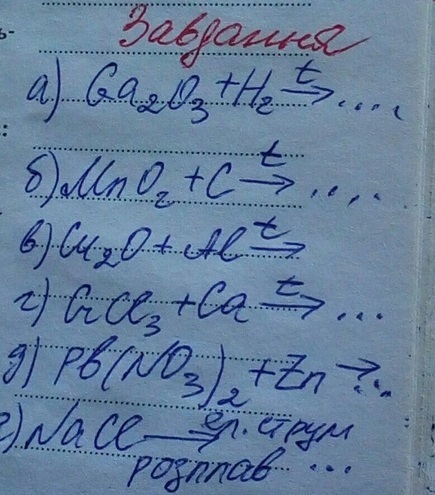 Завдання
а) Ga₂O₃ + H₂ →t ....
б) MnO₂ + C →t ....
в) Cu₂O + Al →t
г) CrCl₃ + Ca →t ...
д) Pb(NO₃)₂ + Zn → ...
NaCl → ел. струм
розплав ...